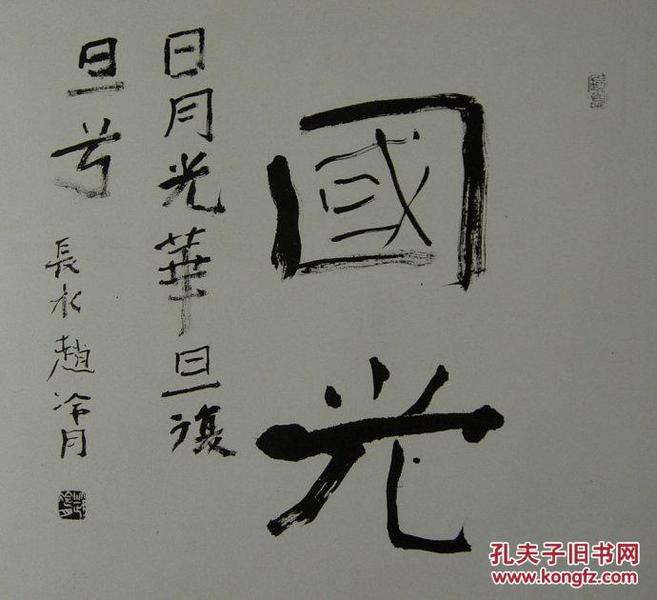 國光
日月光華旦復
旦兮 長水趙冷月
孔夫子旧书网
www.kongfz.com